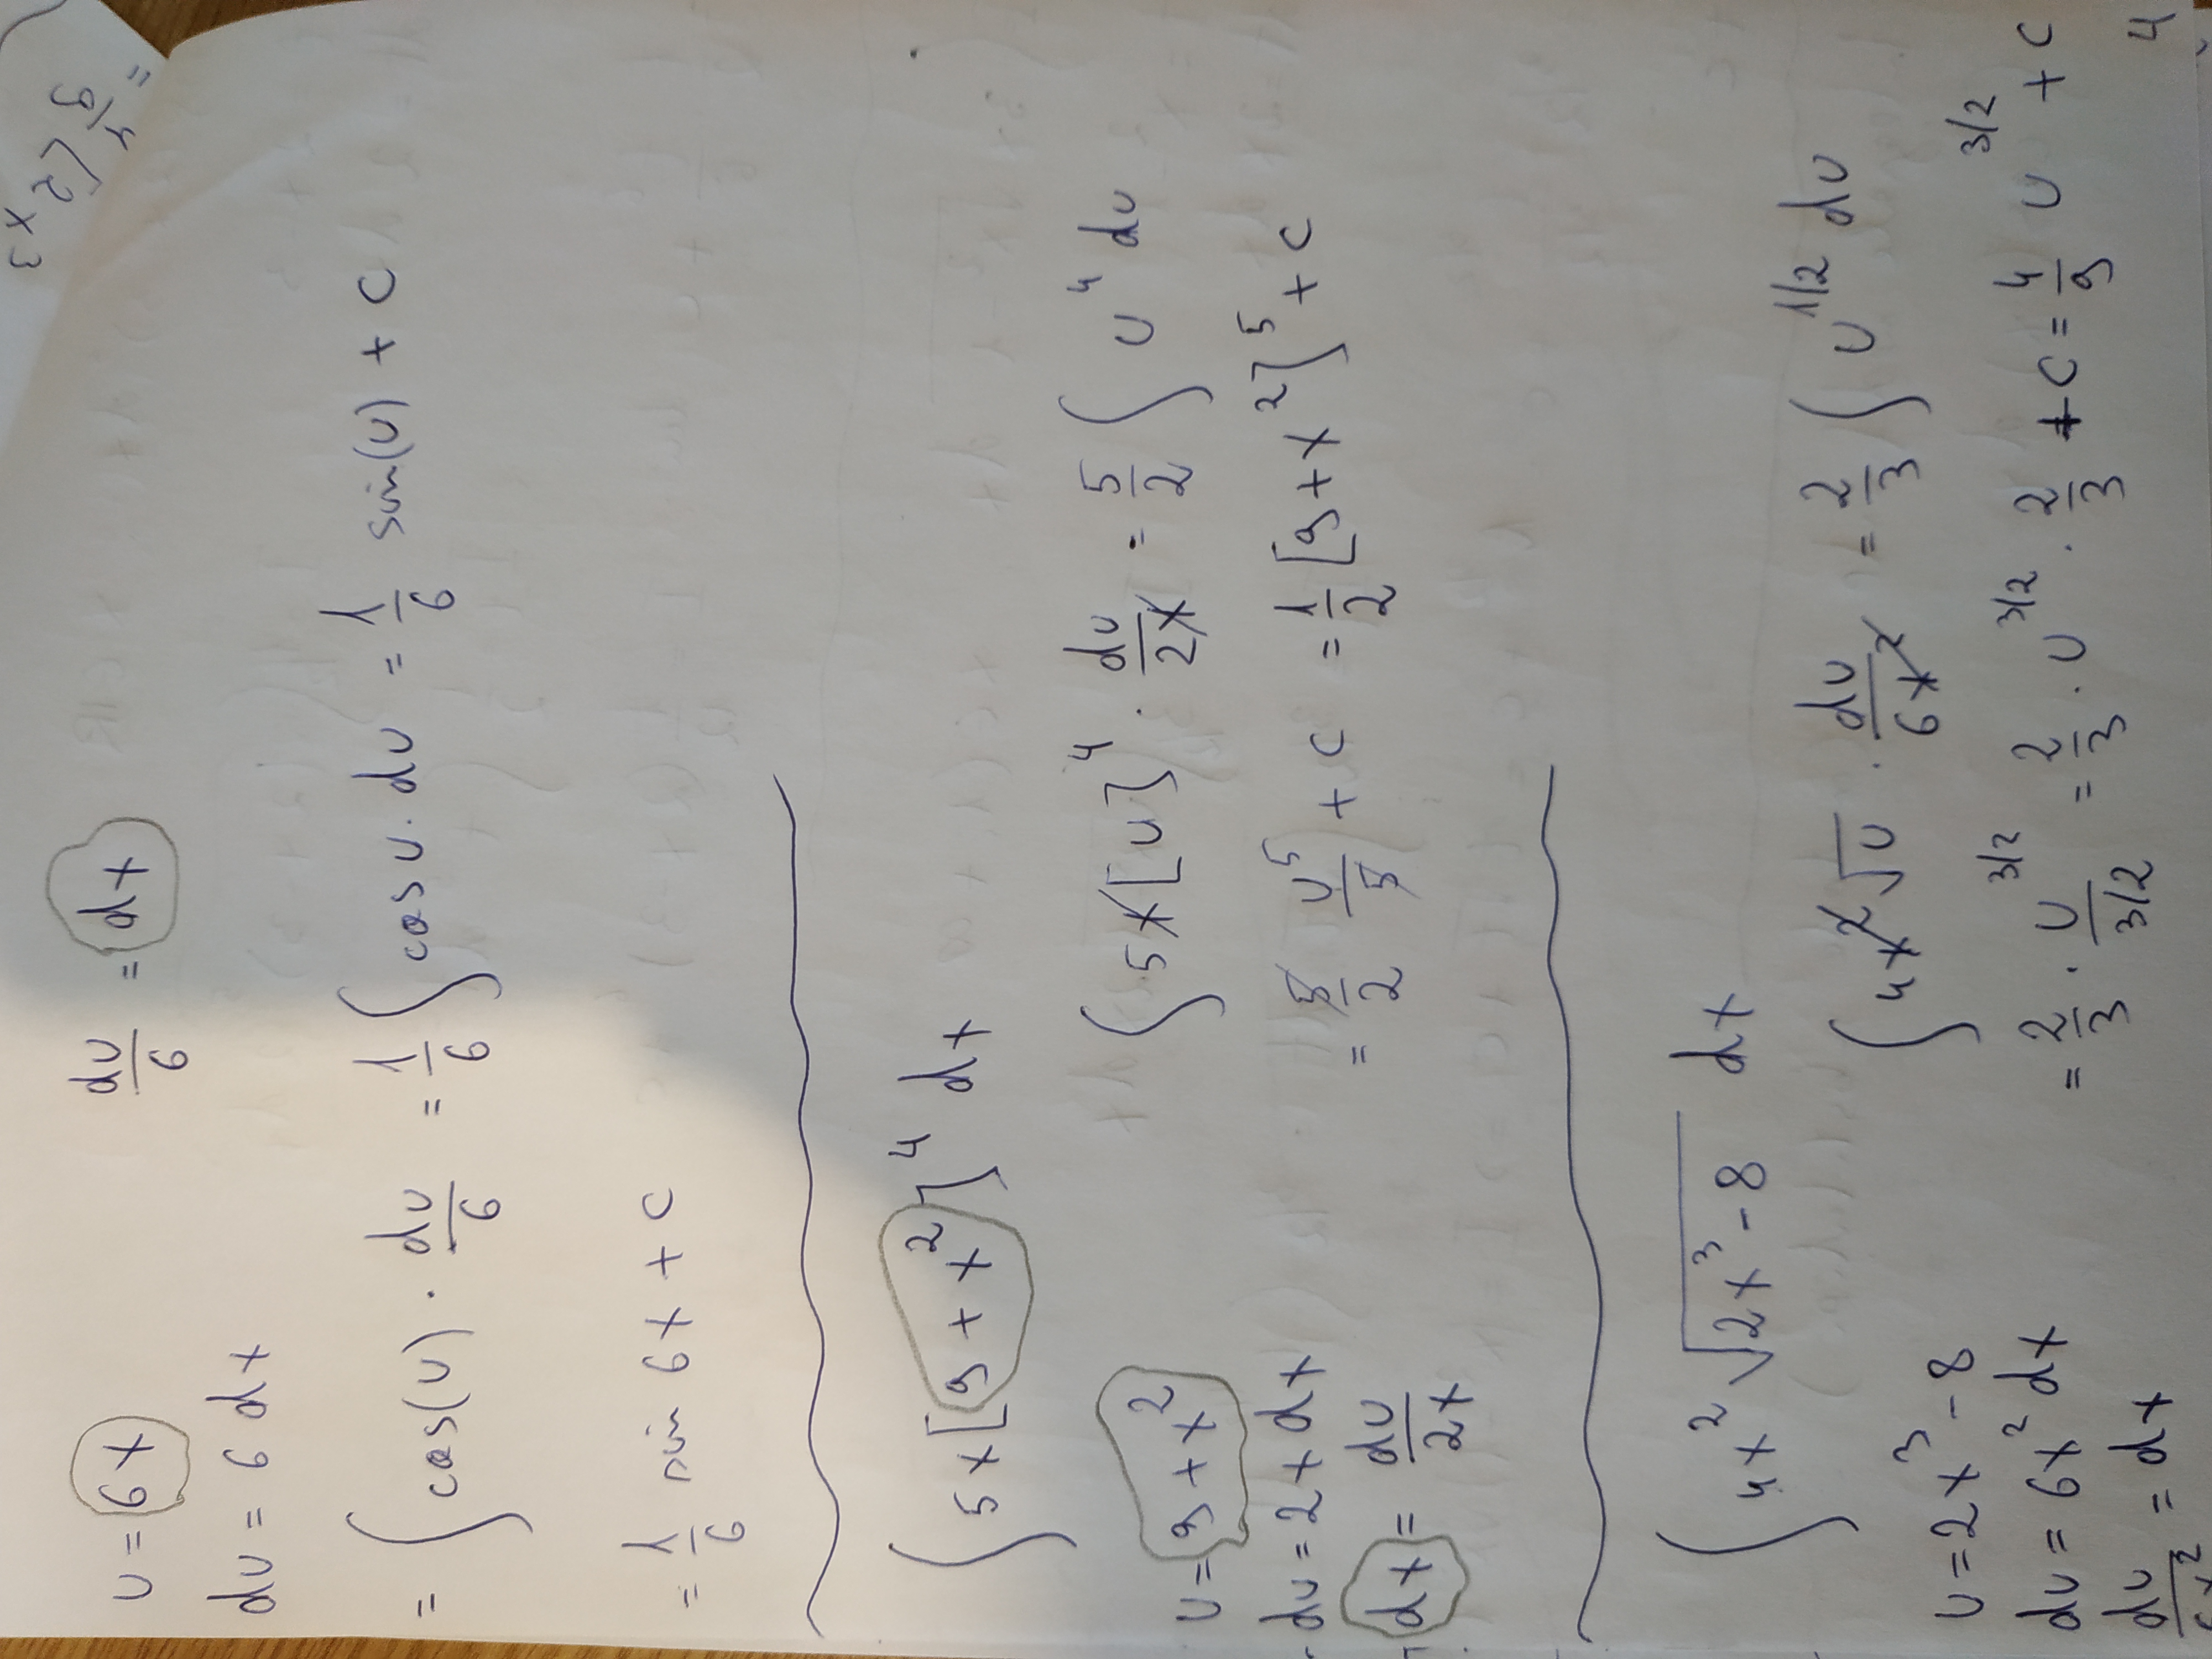 u = 6x    du/6 = dx
du = 6 dx
= ∫ cos(u) · du/6 = 1/6 ∫ cos u · du = 1/6 sin(u) + c
= 1/6 sin 6x + c
∫ 5x[9 + x²]⁴ dx
u = 9 + x²
du = 2x dx
dx = du/2x
∫ 5x[u]⁴ · du/2x = 5/2 ∫ u⁴ du
= 5/2 u⁵/5 + c = 1/2 [9 + x²]⁵ + c
∫ 4x² √(2x³ - 8) dx
u = 2x³ - 8
du = 6x² dx
du/6x² = dx
∫ 4x² √u · du/6x² = 2/3 ∫ u^(1/2) du
= 2/3 · u^(3/2)/(3/2) = 2/3 · u^(3/2) · 2/3 + c = 4/9 u^(3/2) + c
4